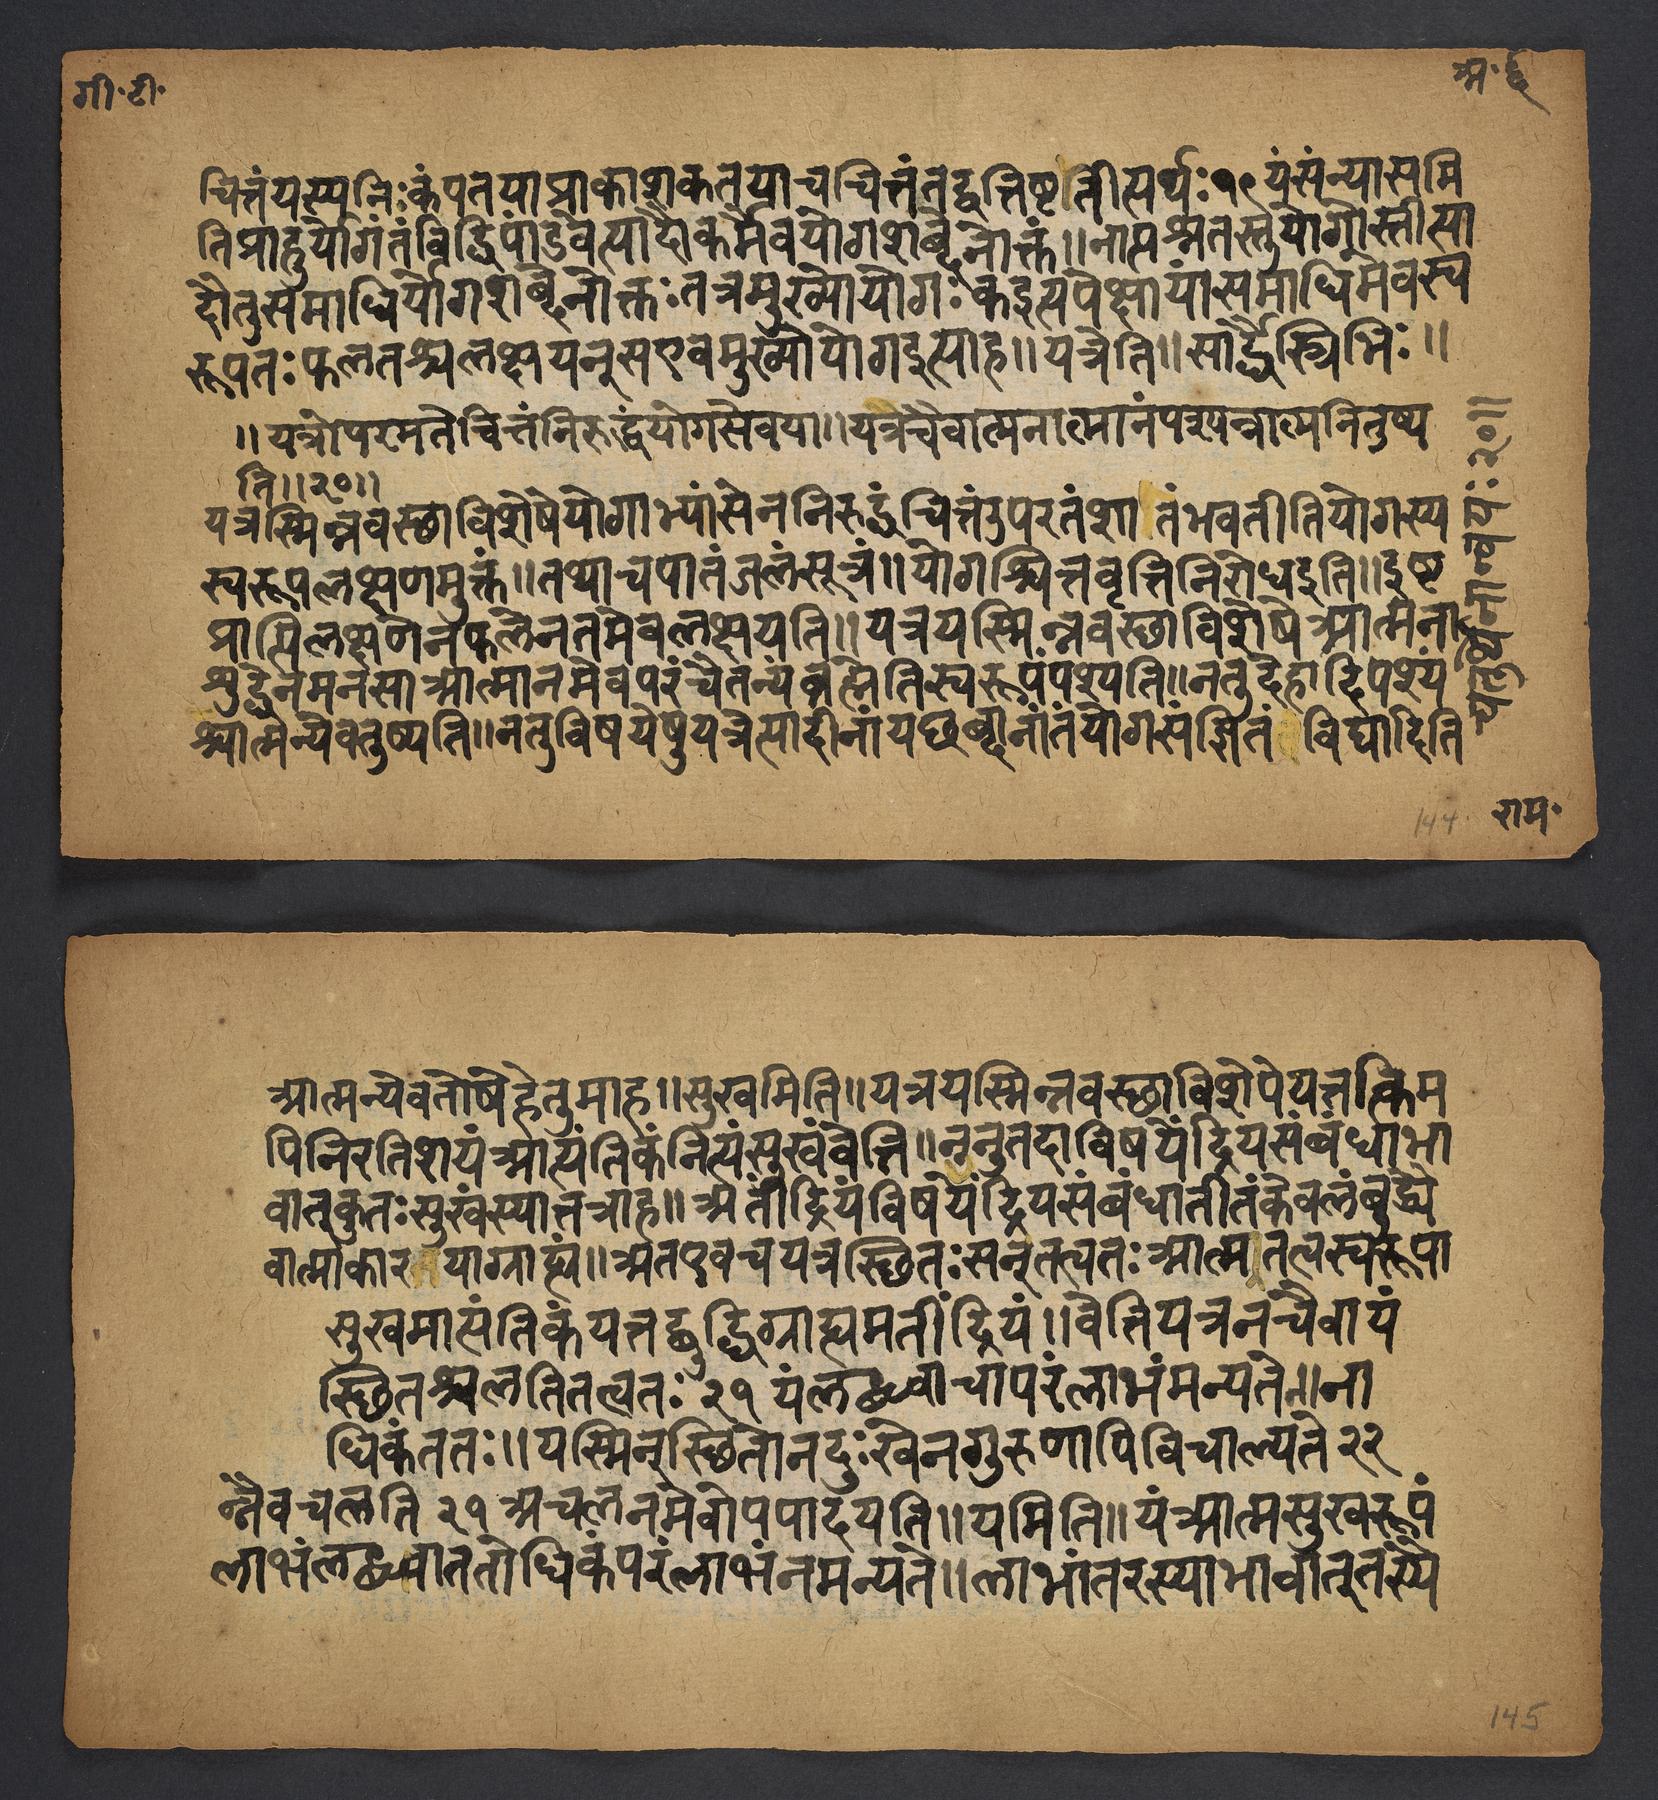 गी॰टी॰
अ॰६
चित्तंयस्यनिःकंपतयाप्राकाशकतयाचचित्तंतद्वत्तिष्टतीत्यर्थः१९यंसंन्यासमि
तिप्राहुर्योगंतंविद्धिपांडवेत्यादौकर्मैवयोगशब्देनोक्तं॥नात्यश्नतस्तुयोगोस्तीत्या
दौतुसमाधिर्योगशब्देनोक्तःतत्रमुख्योयोगःकइत्यपेक्षायांसमाधिमेवस्व
रूपतःफलतश्चलक्षयन्सएवमुख्योयोगइत्याह॥यत्रेति॥सार्द्धैस्त्रिभिः॥
॥यत्रोपरमतेचित्तंनिरुद्धंयोगसेवया॥यत्रचैवात्मनात्मानंपश्यन्नात्मनितुष्य
ति॥२०॥
यत्रस्मिन्नवस्छाविशेषेयोगाभ्यांसेननिरुद्धंचित्तंउपरतंशातंभवतीतियोगस्य
स्वरूपलक्षणमुक्तं॥तथाचपातंजलंसूत्रं॥योगश्चित्तवृत्तिनिरोधइति॥इष्ट
प्राप्तिलक्षणेनफलेनतमेवलक्षयति॥यत्रयस्मिन्नवस्छाविशेषेआत्मना
शुद्धेनमनसाआत्मानमेवपरंचैतन्यंब्रह्मेतिस्वरूपंपश्यति॥नतुदेहादिपश्यं
श्चात्मन्येवतुष्यति॥नतुविषयेषुयत्रेत्यादीनांयछब्दानांतंयोगसंज्ञितंविद्यादिति
राम॰
144
आत्मन्येवतोषेहेतुमाह॥सुखमिति॥यत्रयस्मिन्नवस्छाविशेषेयत्तत्किम
पिनिरतिशयंआत्यंतिकंनित्यंसुखंवेत्ति॥ननुतदाविषयेंद्रियसंबंधाभा
वात्कुतःसुखंस्यात्तत्राह॥अतींद्रियंविषयेंद्रियसंबंधातीतंकेवलंबुद्ध्यै
वात्माकारतयाग्राह्यं॥अतएवचयत्रस्छितःसन्तत्वतःआत्मतत्वस्वरूपा
सुखमात्यंतिकंयत्तद्बुद्धिग्राह्यमतींद्रियं॥वेत्तियत्रनचैवायं
स्छितश्चलतितत्वतः२१यंलब्ध्वाचापरंलाभंमन्यते॥ना
धिकंततः॥यस्मिन्स्छितोनदुःखेनगुरुणापिविचाल्यते२२
न्नैवचलति२१अचलनमेवोपपादयति॥यमिति॥यंआत्मसुखरूपं
लाभंलब्ध्वाततोधिकंपरंलाभंनमन्यते॥लाभांतरस्याभावात्तस्यै
145